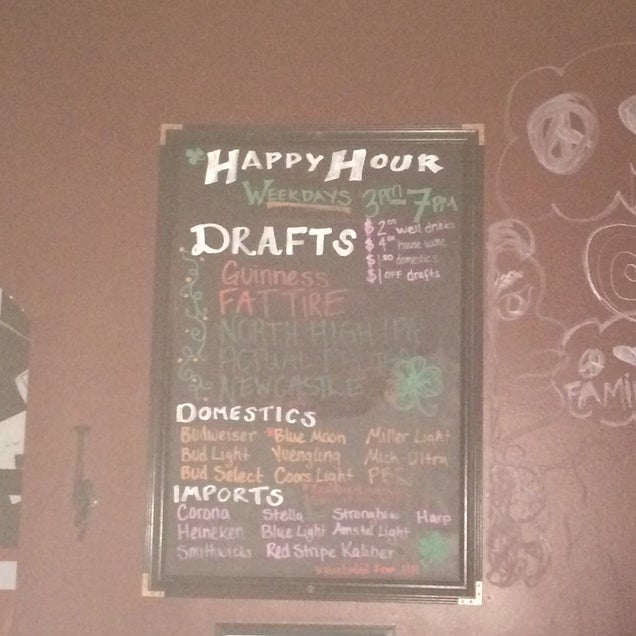 HAPPY HOUR
WEEKDAYS 3PM-7PM
DRAFTS
$2.00 well drinks
$4.00 house wine
$1.50 domestics
$1 OFF drafts
Guinness
FAT TIRE
NORTH HIGH IPA
NEWCASTLE
DOMESTICS
Budweiser Blue Moon Miller Light
Bud Light Yuengling Mich Ultra
Bud Select Coors Light PBR
IMPORTS
Corona Stella Strongbow Harp
Heineken Blue Light Amstel Light
Smithwicks Red Stripe Kaliber
FAMI